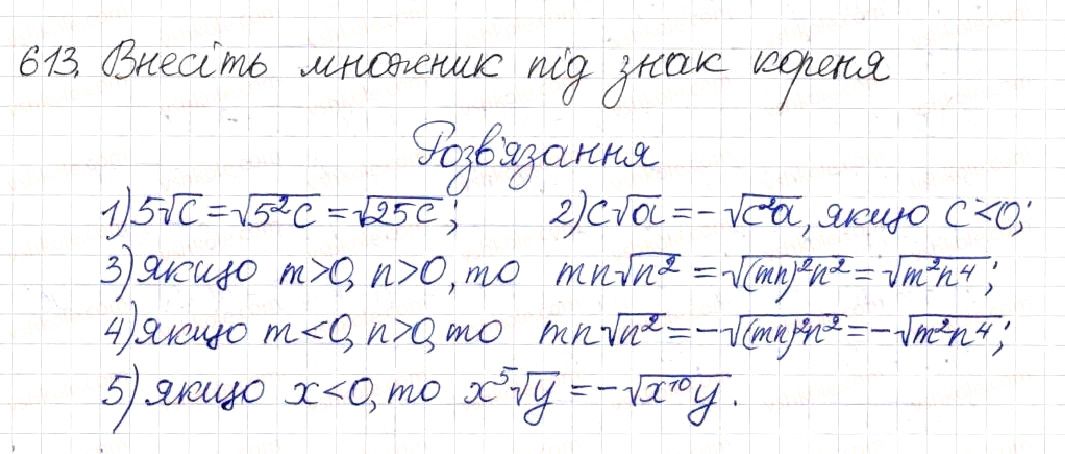 613. Внесіть множник під знак кореня
Розв'язання
1) 5√c = √5²c = √25c; 2) c√a = -√c²a, якщо c<0;
3) якщо m>0, n>0, то mn√n² = √(mn)²n² = √m²n⁴;
4) якщо m<0, n>0, то mn√n² = -√(mn)²n² = -√m²n⁴;
5) якщо x<0, то x⁵√y = -√x¹⁰y.